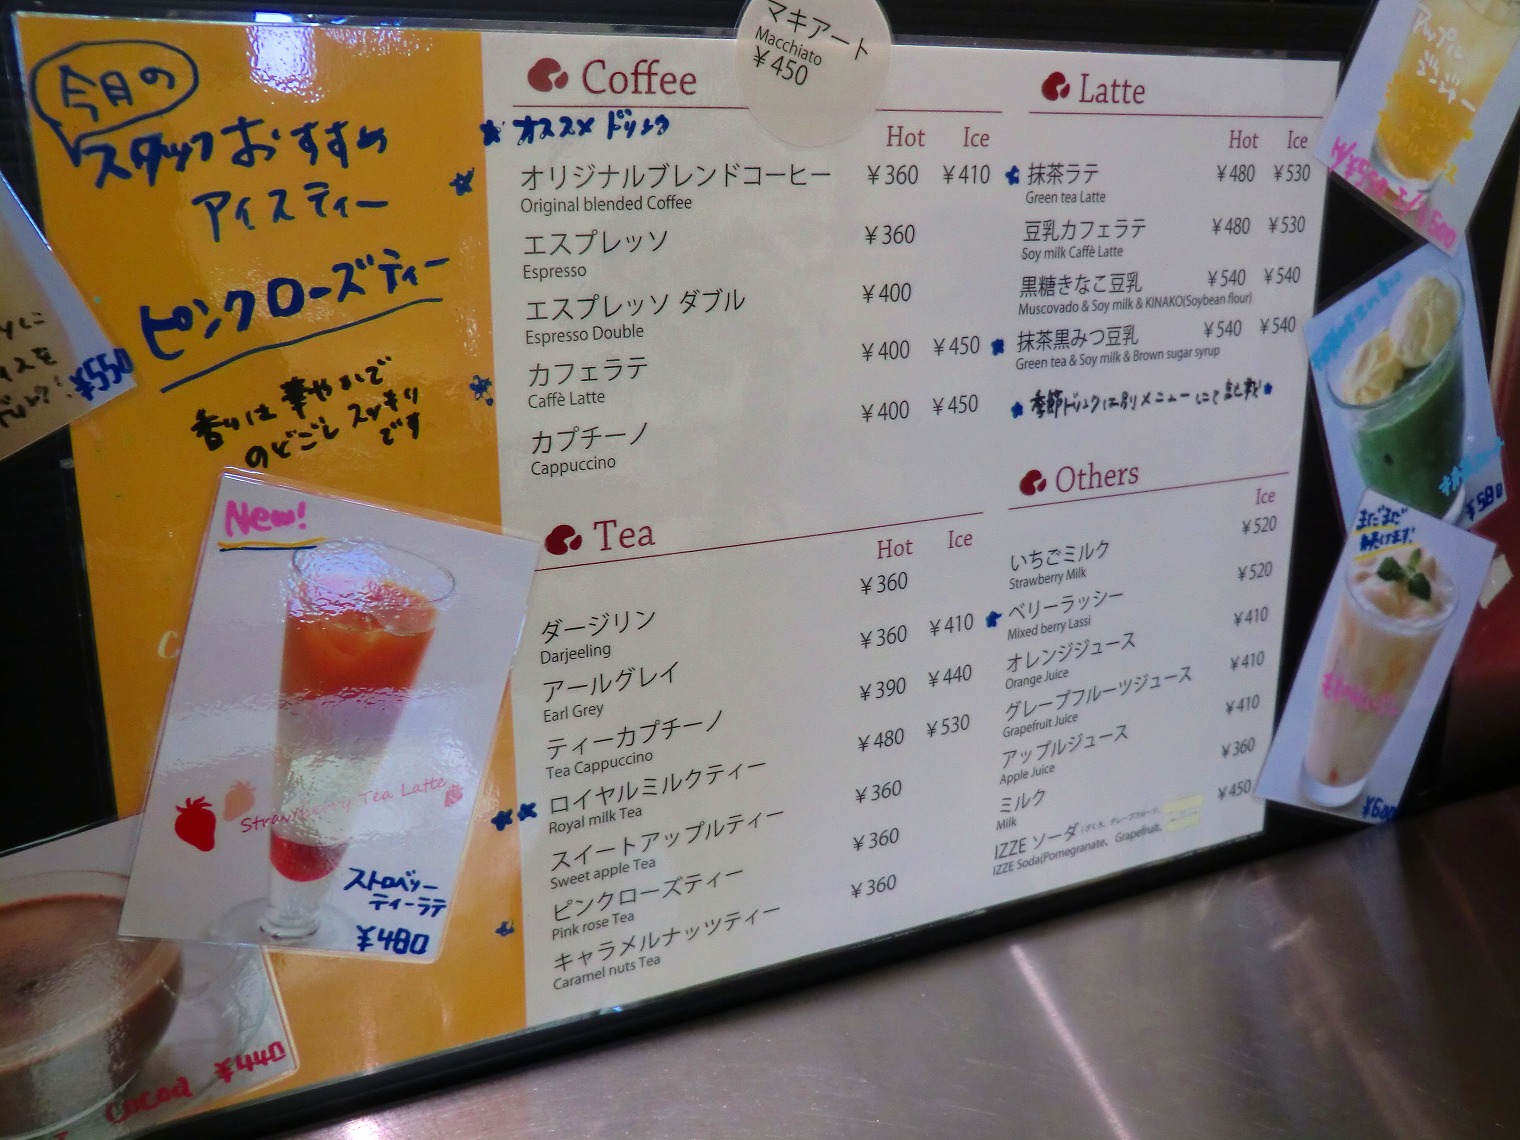 今月の
スタッフおすすめ
アイスティー
ピンクローズティー
香りは華やかで
のどごしスッキリ
です
¥550
New!
Strawberry Tea Latte
ストロベリー
ティーラテ
¥480
Cocoa ¥440
マキアート
Macchiato
¥450
Coffee
オススメドリンク
Hot Ice
オリジナルブレンドコーヒー ¥360 ¥410
Original blended Coffee
エスプレッソ ¥360
Espresso
エスプレッソ ダブル ¥400
Espresso Double
カフェラテ ¥400 ¥450
Caffè Latte
カプチーノ ¥400 ¥450
Cappuccino
Tea
Hot Ice
¥360
ダージリン
Darjeeling
¥360 ¥410
アールグレイ
Earl Grey
¥390 ¥440
ティーカプチーノ
Tea Cappuccino
¥480 ¥530
ロイヤルミルクティー
Royal milk Tea
¥360
スイートアップルティー
Sweet apple Tea
¥360
ピンクローズティー
Pink rose Tea
¥360
キャラメルナッツティー
Caramel nuts Tea
Latte
Hot Ice
抹茶ラテ ¥480 ¥530
Green tea Latte
豆乳カフェラテ ¥480 ¥530
Soy milk Caffè Latte
黒糖きなこ豆乳 ¥540 ¥540
Muscovado & Soy milk & KINAKO(Soybean flour)
抹茶黒みつ豆乳 ¥540 ¥540
Green tea & Soy milk & Brown sugar syrup
季節ドリンクは別メニューにて記載!
Others
Ice
¥520
いちごミルク
Strawberry Milk
¥520
ベリーラッシー
Mixed berry Lassi
¥410
オレンジジュース
Orange Juice
¥410
グレープフルーツジュース
Grapefruit Juice
¥410
アップルジュース
Apple Juice
¥360
ミルク
Milk
¥450
IZZE ソーダ
IZZE Soda(Pomegranate、Grapefruit、
アップル
ジンジャー
¥580
まだまだ
続けます!
¥600